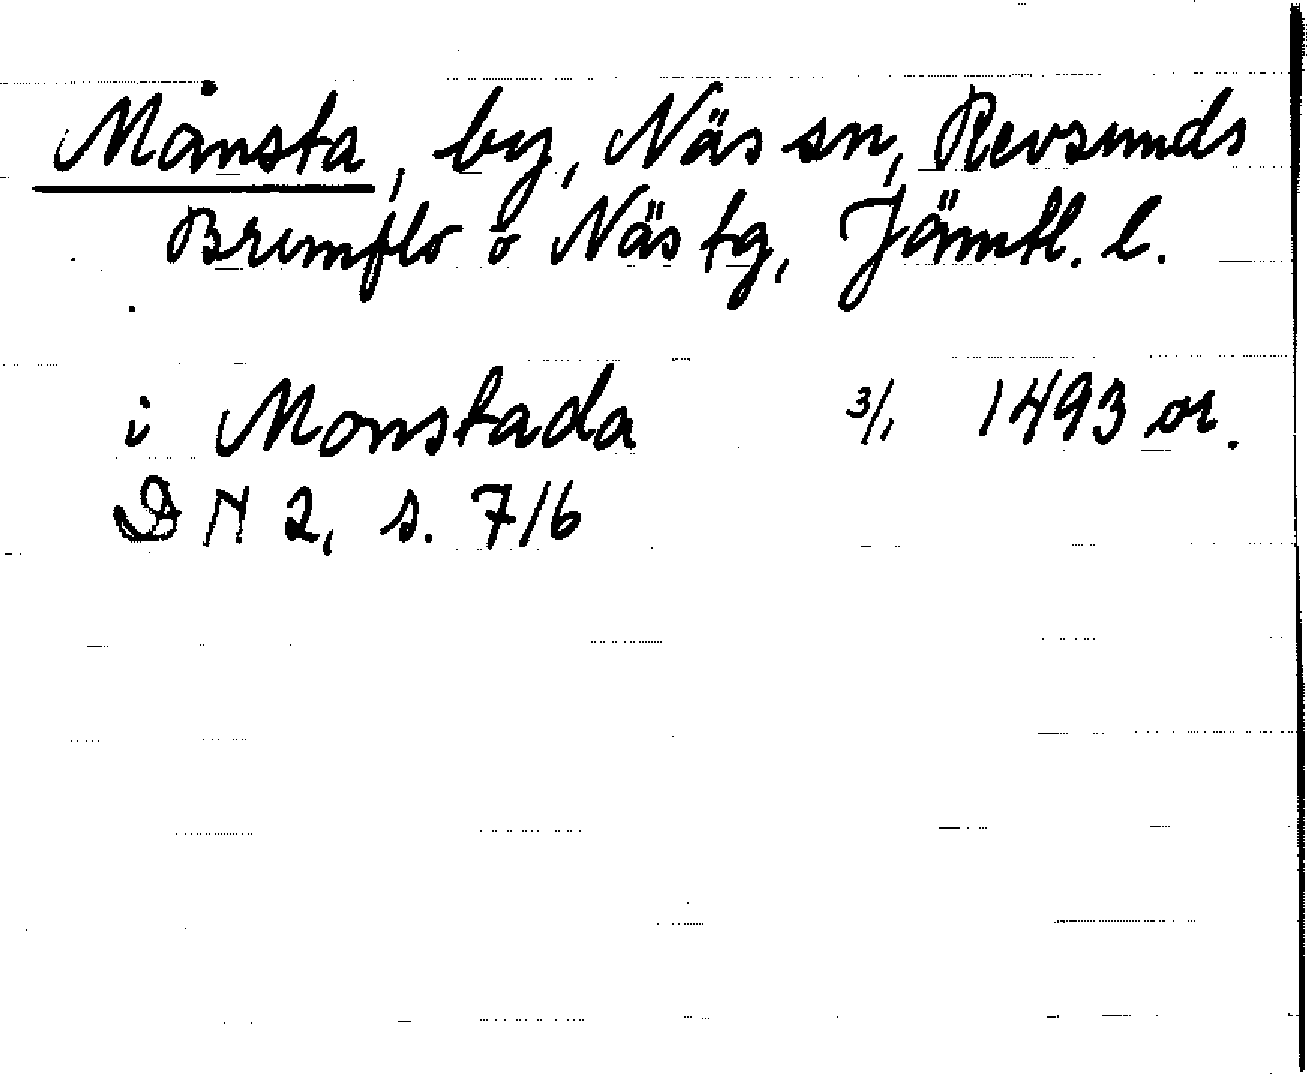 Månsta, by, Näs sn, Revsunds
Brunflo o Näs tg, Jämtl. l.
i Monstada 3/1 1493 or.
DN 2, s. 716